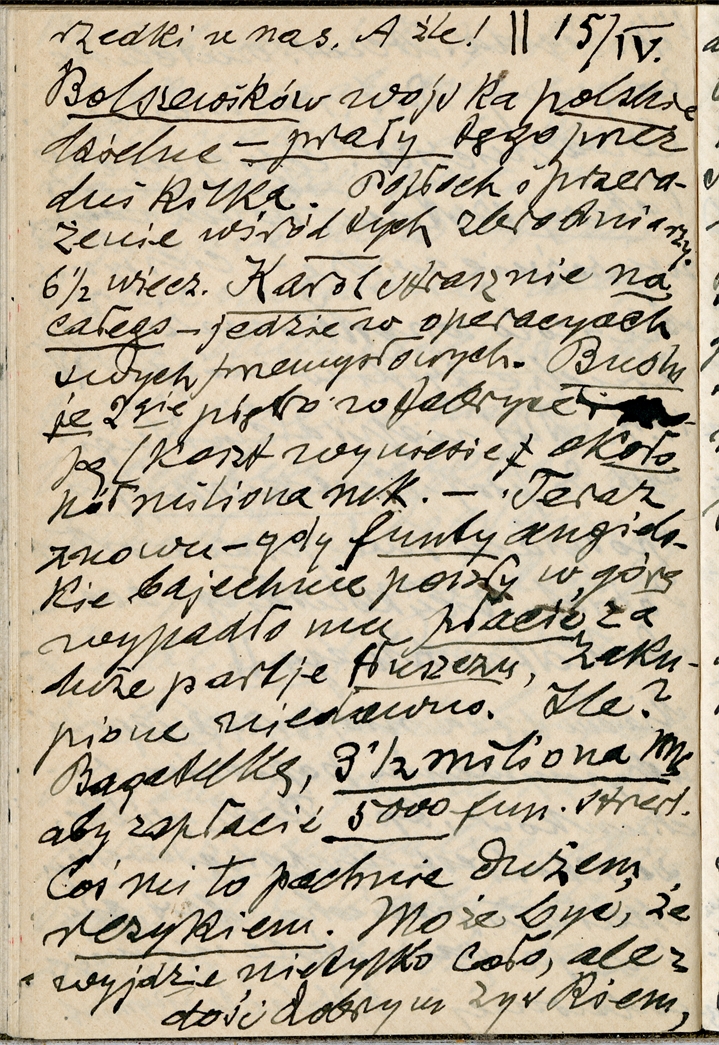 rzedki u nas. A źle! || 15/IV.
Bolszewików wojska polskie
dzielne – prały tęgo przez
dni kilka. Popłoch i przera-
żenie wśród tych zbrodniarzy.
6½ wiecz. Karol strasznie na
całego – jedzie w operacyach
swych przemysłowych. Budu
je 2gie piętro w fabryce
(koszt wyniesie około
pół miliona mk. – Teraz
znowu – gdy funty angiels-
kie bajecznie poszły w górę
wypadło mu płacić za
duże partje tłuszczu, zaku-
pione niedawno. Ile?
Bagatelkę, 3½ miliona mk
aby zapłacić 5000 fun. sterl.
Coś mi to pachnie dużem
ryzykiem. Może być, że
wyjdzie nietylko cało, ale z
dość dobrym zyskiem,